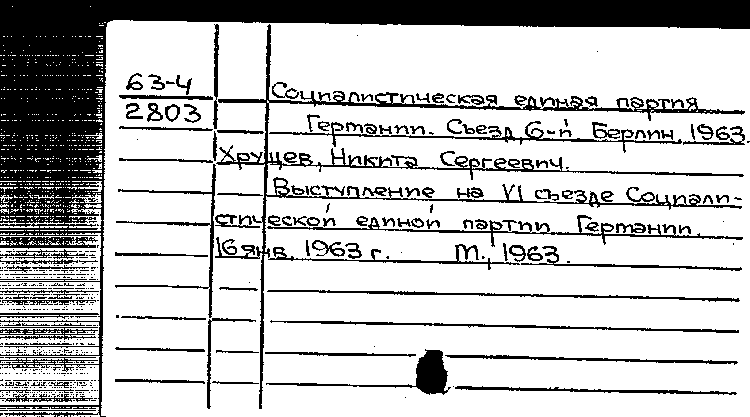 63-4
2803
Социалистическая единая партия
Германии. Съезд, 6-й Берлин, 1963.
Хрущев, Никита Сергеевич.
Выступление на VI съезде Социали-
стической единой партии Германии.
16 янв. 1963 г. М., 1963.